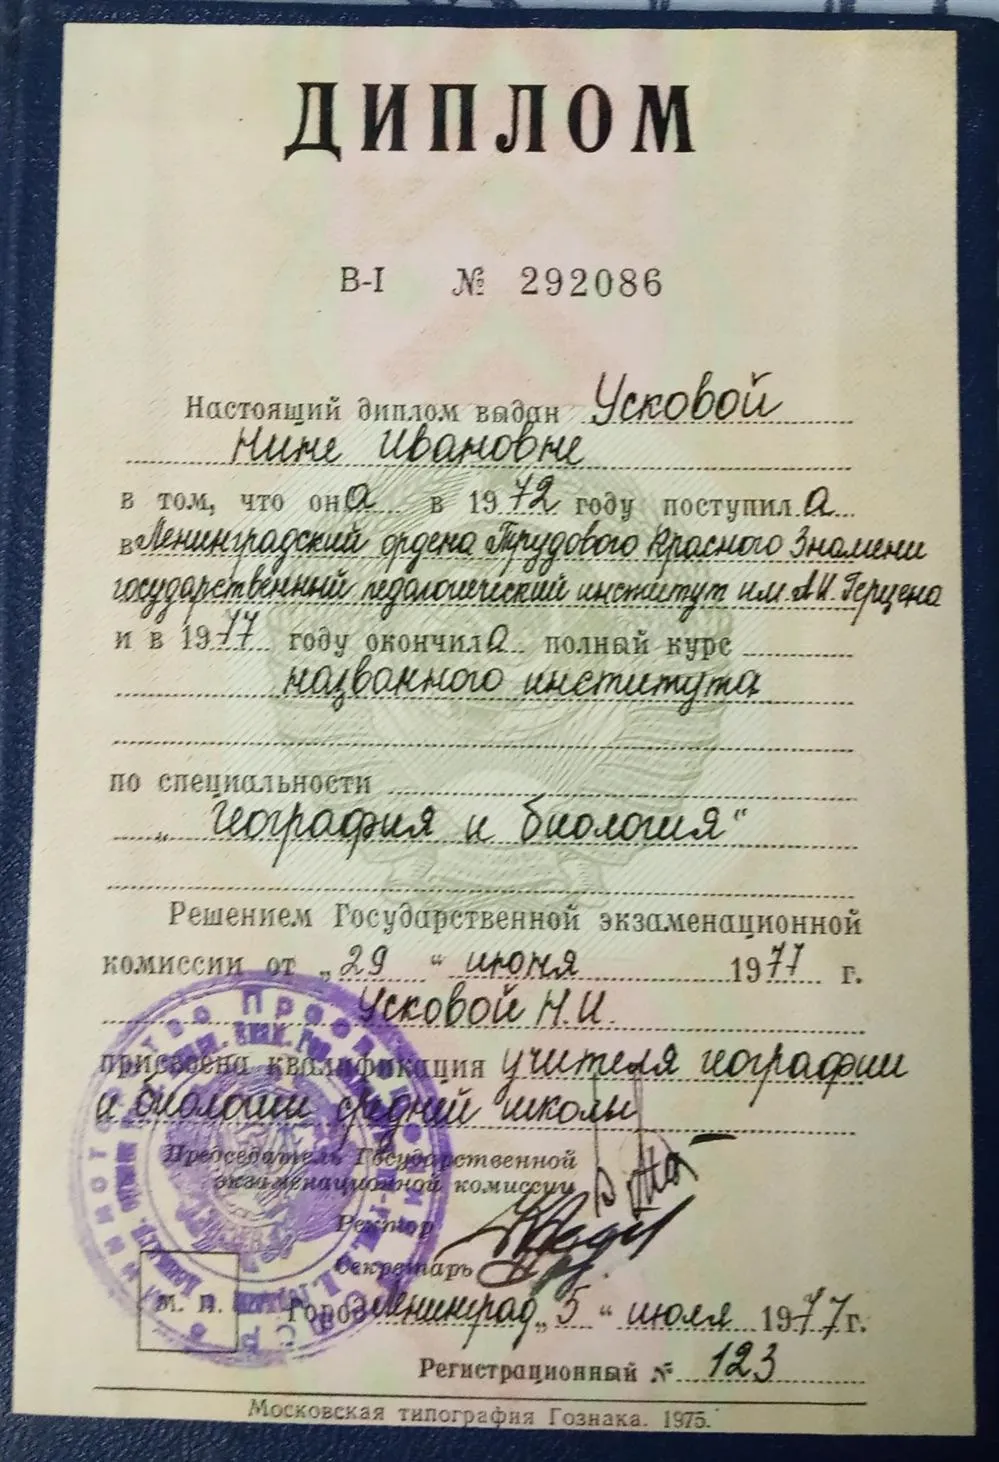 ДИПЛОМ
В-I № 292086
Настоящий диплом выдан Усковой
Нине Ивановне
в том, что она в 1972 году поступила
в Ленинградский ордена Трудового Красного Знамени
государственный педагогический институт им. А.И. Герцена
и в 1977 году окончила полный курс
названного института
по специальности
„География и биология“
Решением Государственной экзаменационной
комиссии от „29“ июня 1977 г.
Усковой Н.И.
присвоена квалификация учителя географии
и биологии средней школы
Председатель Государственной
экзаменационной комиссии
Ректор
Секретарь
М. П.
Город Ленинград „5“ июля 1977 г.
Регистрационный № 123
Московская типография Гознака. 1975.